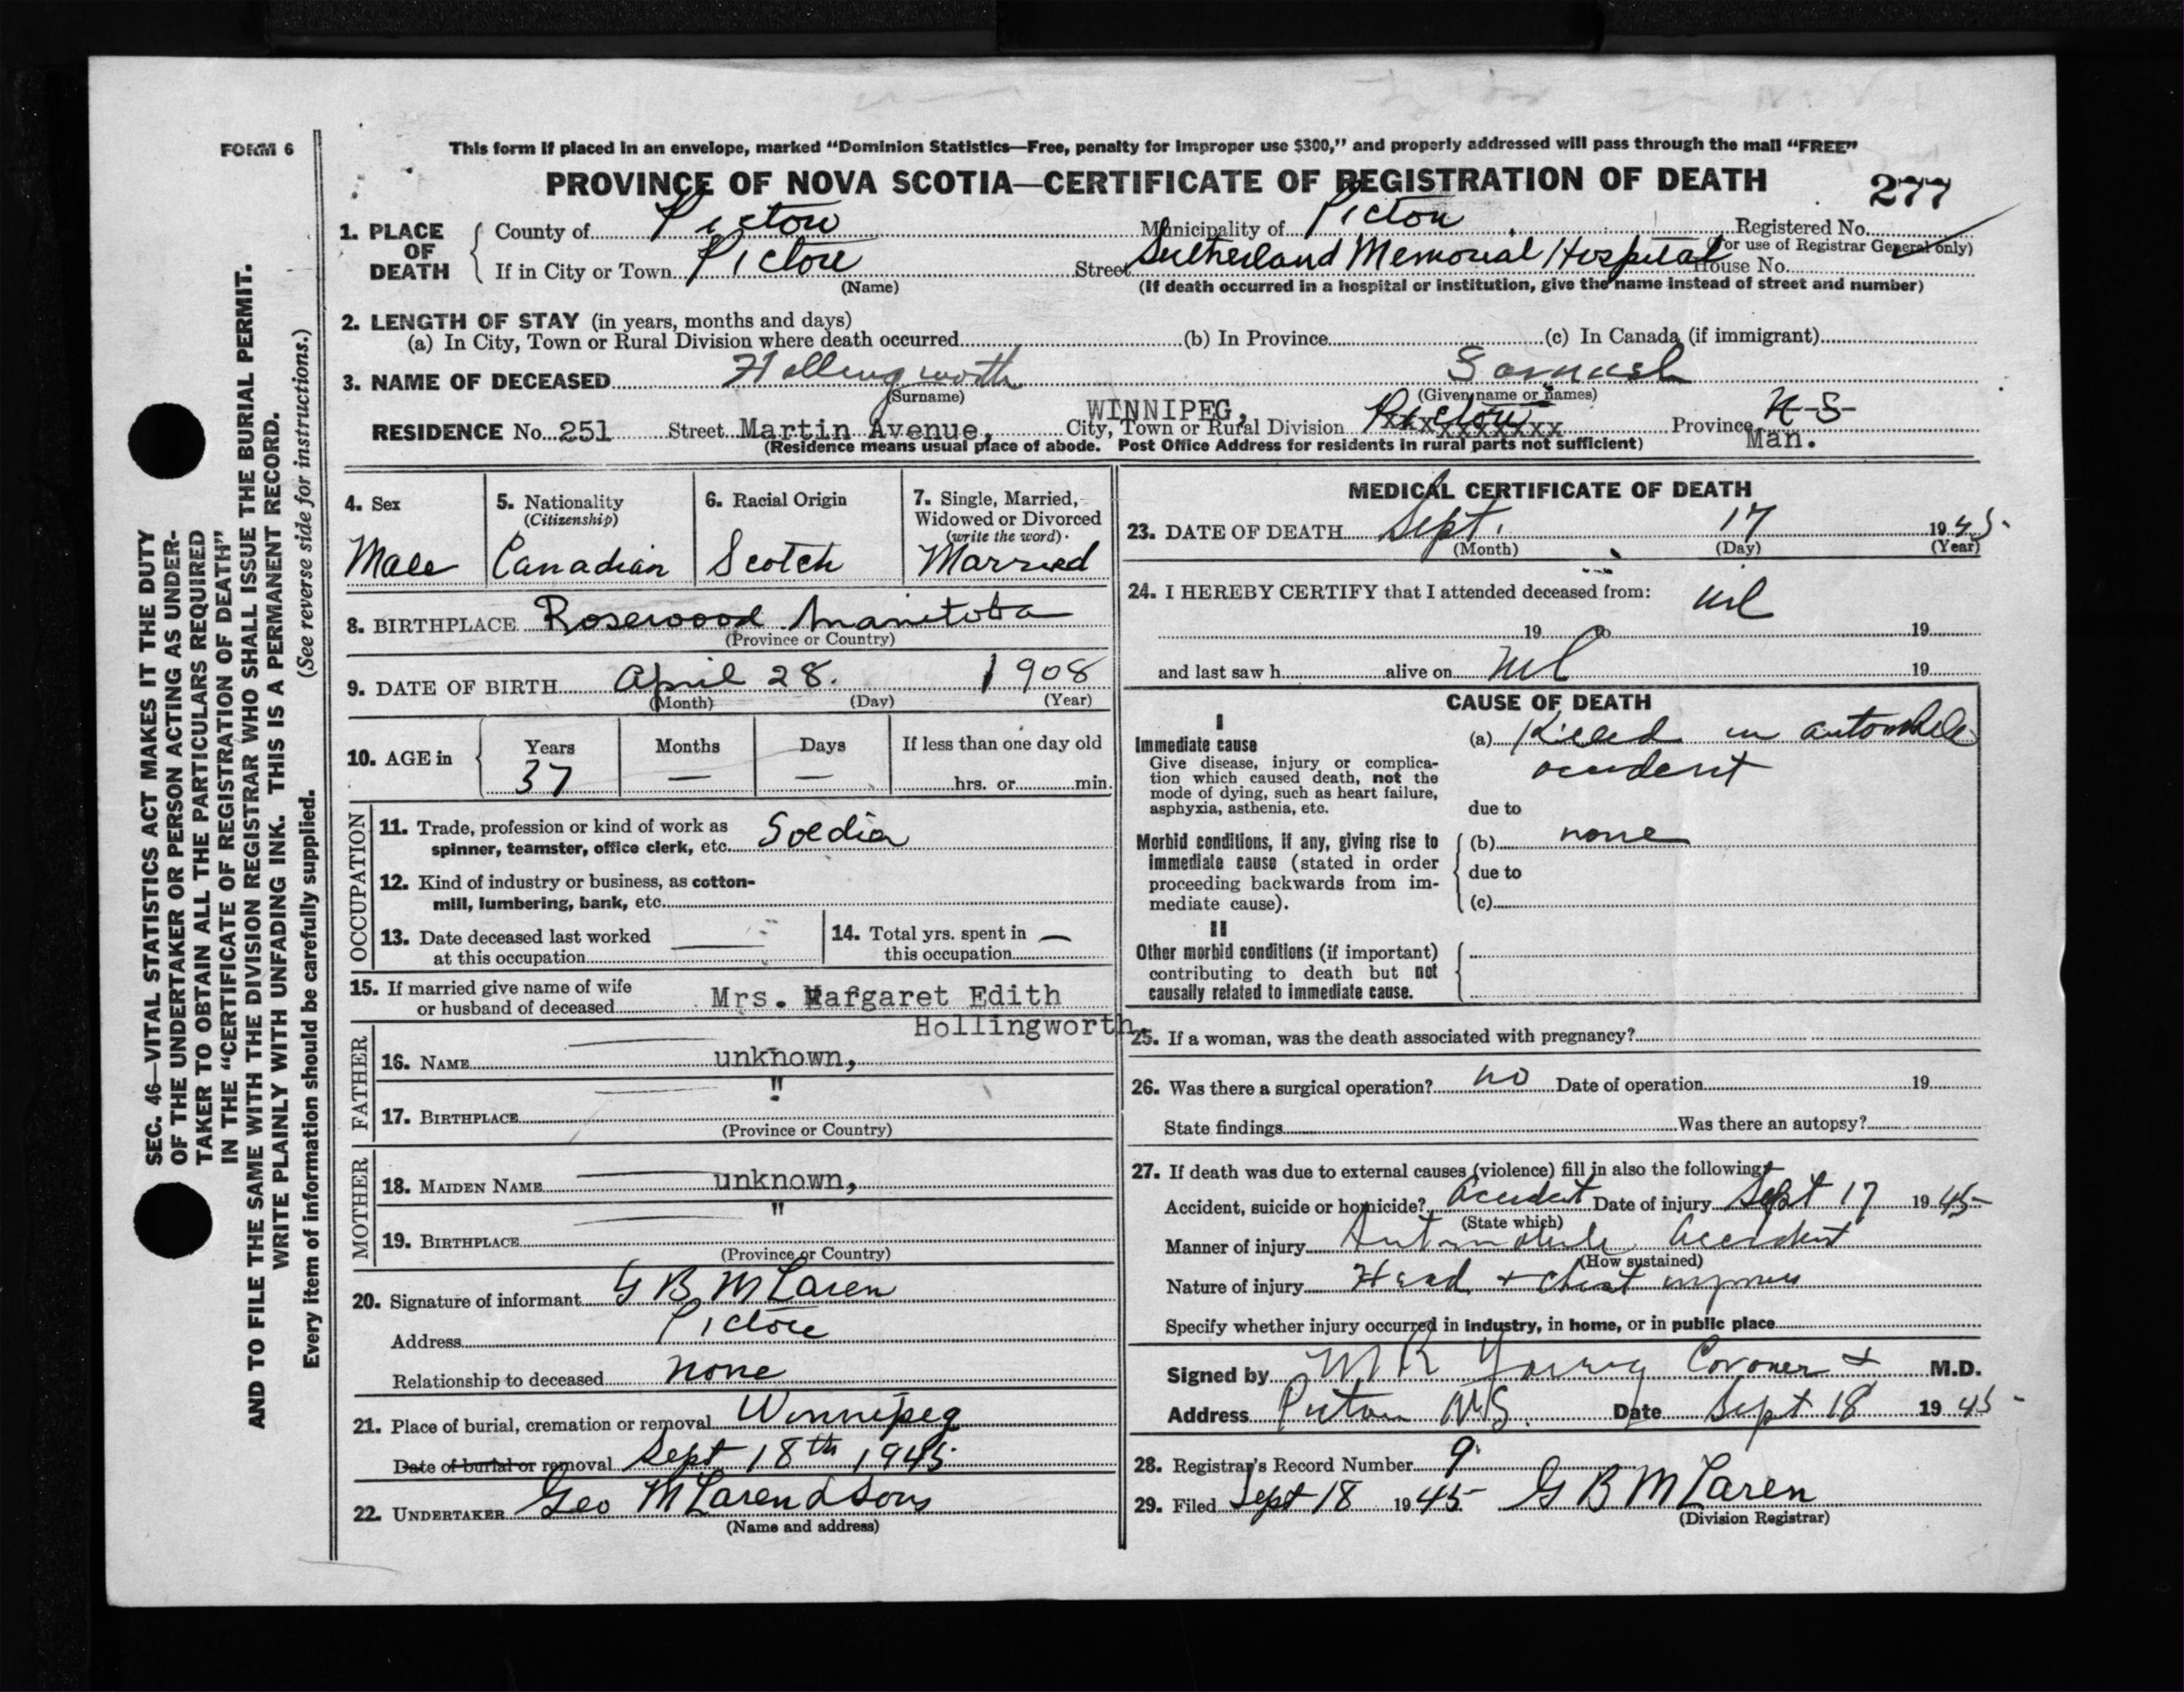 FORM 6
This form if placed in an envelope, marked “Dominion Statistics—Free, penalty for improper use $300,” and properly addressed will pass through the mail “FREE”
PROVINCE OF NOVA SCOTIA—CERTIFICATE OF REGISTRATION OF DEATH
277
1. PLACE OF DEATH
County of Pictou Municipality of Pictou Registered No.
(For use of Registrar General only)
If in City or Town Pictou Street Sutherland Memorial Hospital House No.
(Name) (If death occurred in a hospital or institution, give the name instead of street and number)
2. LENGTH OF STAY (in years, months and days)
(a) In City, Town or Rural Division where death occurred (b) In Province (c) In Canada (if immigrant)
3. NAME OF DECEASED Hollingworth Samuel
(Surname) (Given name or names)
WINNIPEG, N-S-
RESIDENCE No. 251 Street Martin Avenue, City, Town or Rural Division Pictou xxxxxxxxxx Province Man.
(Residence means usual place of abode. Post Office Address for residents in rural parts not sufficient)
4. Sex
Male
5. Nationality
(Citizenship)
Canadian
6. Racial Origin
Scotch
7. Single, Married,
Widowed or Divorced
(write the word)
Married
8. BIRTHPLACE Rosewood Manitoba
(Province or Country)
9. DATE OF BIRTH April 28. 1908
(Month) (Day) (Year)
10. AGE in
Years Months Days If less than one day old
37 — — hrs. or min.
OCCUPATION
11. Trade, profession or kind of work as
spinner, teamster, office clerk, etc. Soldier
12. Kind of industry or business, as cotton-
mill, lumbering, bank, etc.
13. Date deceased last worked
at this occupation
14. Total yrs. spent in —
this occupation
15. If married give name of wife
or husband of deceased Mrs. Margaret Edith
Hollingworth,
FATHER
16. NAME unknown,
"
17. BIRTHPLACE
(Province or Country)
MOTHER
18. MAIDEN NAME unknown,
"
19. BIRTHPLACE
(Province or Country)
20. Signature of informant G B McLaren
Address Pictou
Relationship to deceased none
21. Place of burial, cremation or removal Winnipeg
Date of burial or removal Sept 18th 1945
22. UNDERTAKER Geo McLaren & Sons
(Name and address)
MEDICAL CERTIFICATE OF DEATH
23. DATE OF DEATH Sept. 17 1945
(Month) (Day) (Year)
24. I HEREBY CERTIFY that I attended deceased from: nil
19 to 19
and last saw h alive on nil 19
CAUSE OF DEATH
I
Immediate cause
Give disease, injury or complica-
tion which caused death, not the
mode of dying, such as heart failure,
asphyxia, asthenia, etc.
(a) Killed in automobile
accident
due to
Morbid conditions, if any, giving rise to
immediate cause (stated in order
proceeding backwards from im-
mediate cause).
(b) none
due to
(c)
II
Other morbid conditions (if important)
contributing to death but not
causally related to immediate cause.
25. If a woman, was the death associated with pregnancy?
26. Was there a surgical operation? no Date of operation 19
State findings Was there an autopsy?
27. If death was due to external causes (violence) fill in also the following:
Accident, suicide or homicide? accident Date of injury Sept 17 1945
(State which)
Manner of injury Automobile accident
(How sustained)
Nature of injury Head + chest injuries
Specify whether injury occurred in industry, in home, or in public place
Signed by M R Young Coroner + M.D.
Address Pictou N.S. Date Sept 18 1945
28. Registrar's Record Number 9
29. Filed Sept 18 1945 G B McLaren
(Division Registrar)
SEC. 46—VITAL STATISTICS ACT MAKES IT THE DUTY
OF THE UNDERTAKER OR PERSON ACTING AS UNDER-
TAKER TO OBTAIN ALL THE PARTICULARS REQUIRED
IN THE “CERTIFICATE OF REGISTRATION OF DEATH”
AND TO FILE THE SAME WITH THE DIVISION REGISTRAR WHO SHALL ISSUE THE BURIAL PERMIT.
WRITE PLAINLY WITH UNFADING INK. THIS IS A PERMANENT RECORD.
Every item of information should be carefully supplied. (See reverse side for instructions.)